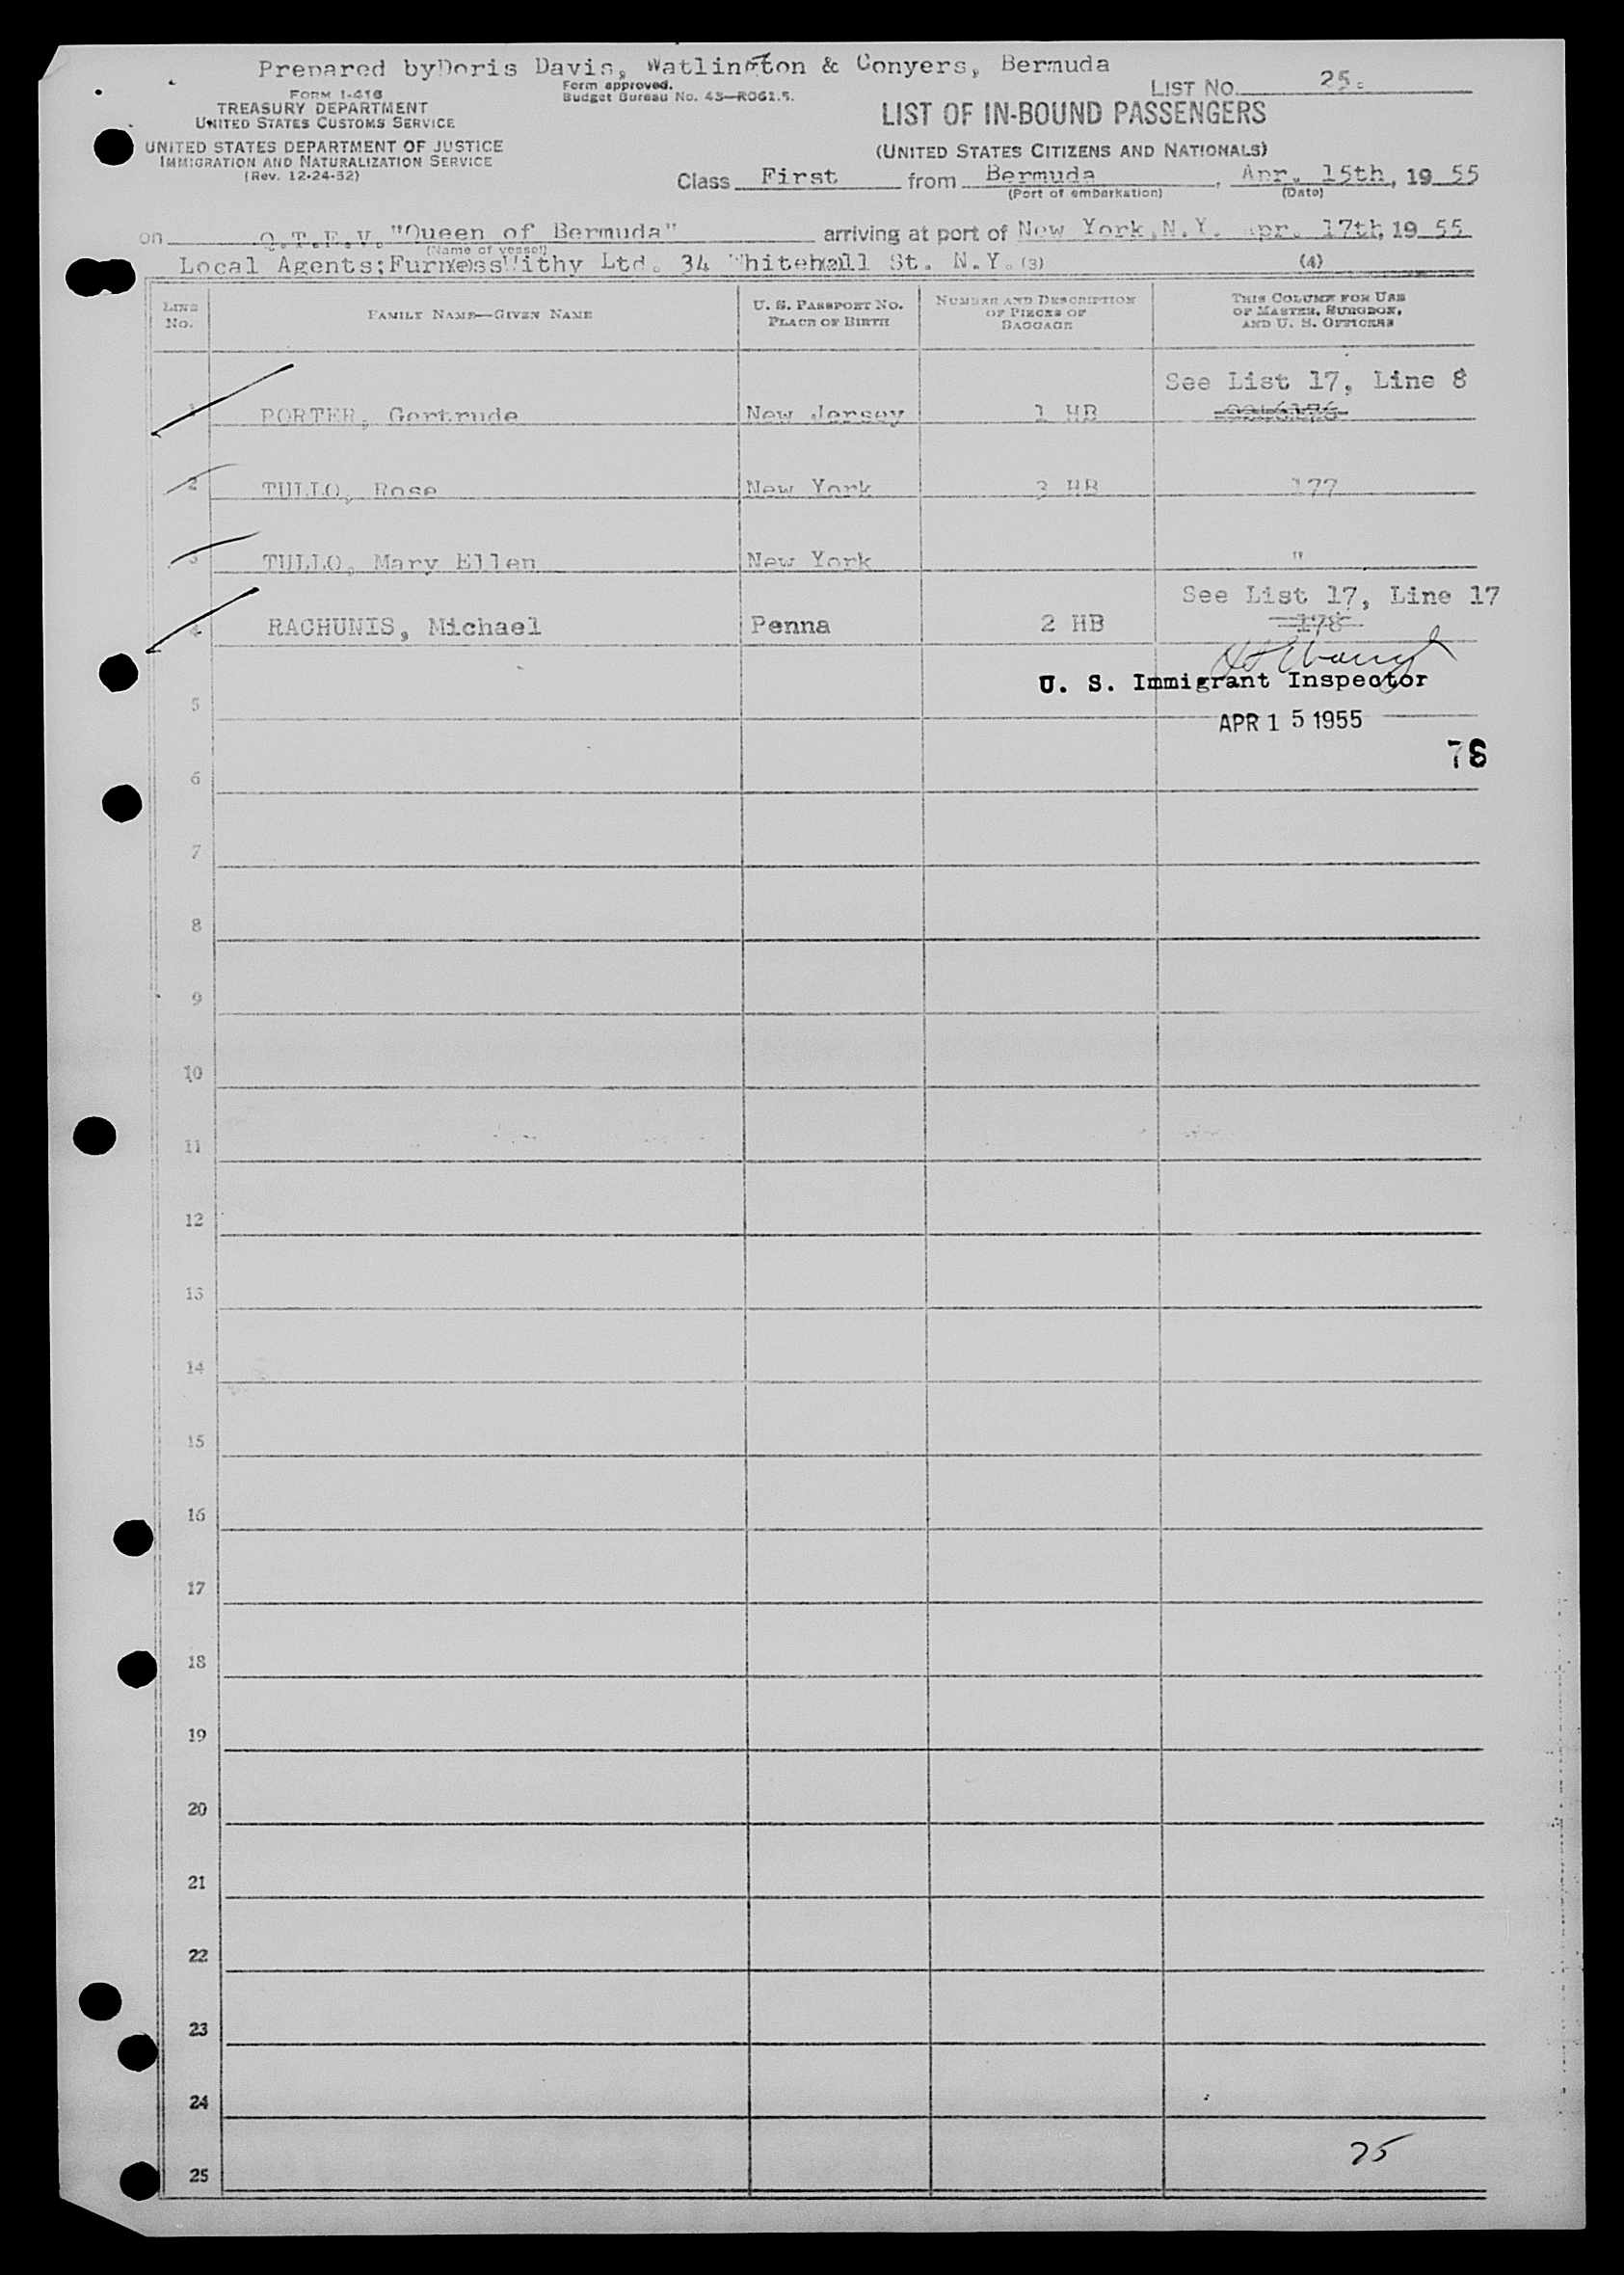 Prepared byDoris Davis, Watlington & Conyers, Bermuda
FORM I-416
TREASURY DEPARTMENT
UNITED STATES CUSTOMS SERVICE
UNITED STATES DEPARTMENT OF JUSTICE
IMMIGRATION AND NATURALIZATION SERVICE
(Rev. 12-24-52)
Form approved.
Budget Bureau No. 43—R061.5.
LIST No. 25.
LIST OF IN-BOUND PASSENGERS
(UNITED STATES CITIZENS AND NATIONALS)
Class First from Bermuda, Apr. 15th, 19 55
(Port of embarkation) (Date)
on Q.T.E.V. "Queen of Bermuda" arriving at port of New York, N.Y. Apr. 17th, 19 55
(Name of vessel)
Local Agents: Furness Withy Ltd. 34 Whitehall St. N.Y. (3) (4)
LINE No. FAMILY NAME—GIVEN NAME U. S. PASSPORT NO. PLACE OF BIRTH NUMBER AND DESCRIPTION OF PIECES OF BAGGAGE THIS COLUMN FOR USE OF MASTER, SURGEON, AND U. S. OFFICERS
See List 17, Line 8
1 PORTER, Gertrude New Jersey 1 HB
2 TULLO, Rose New York 3 HB 177
3 TULLO, Mary Ellen New York "
See List 17, Line 17
4 RACHUNIS, Michael Penna 2 HB 178
U. S. Immigrant Inspector
5
APR 15 1955
78
6
7
8
9
10
11
12
13
14
15
16
17
18
19
20
21
22
23
24
25
25